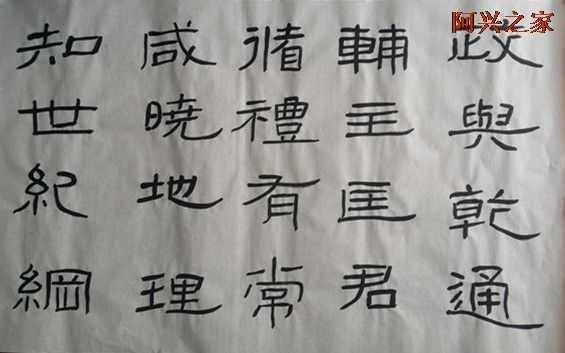 阿兴之家
政與乾通
輔主匡君
循禮有常
咸暁地理
知世紀綱